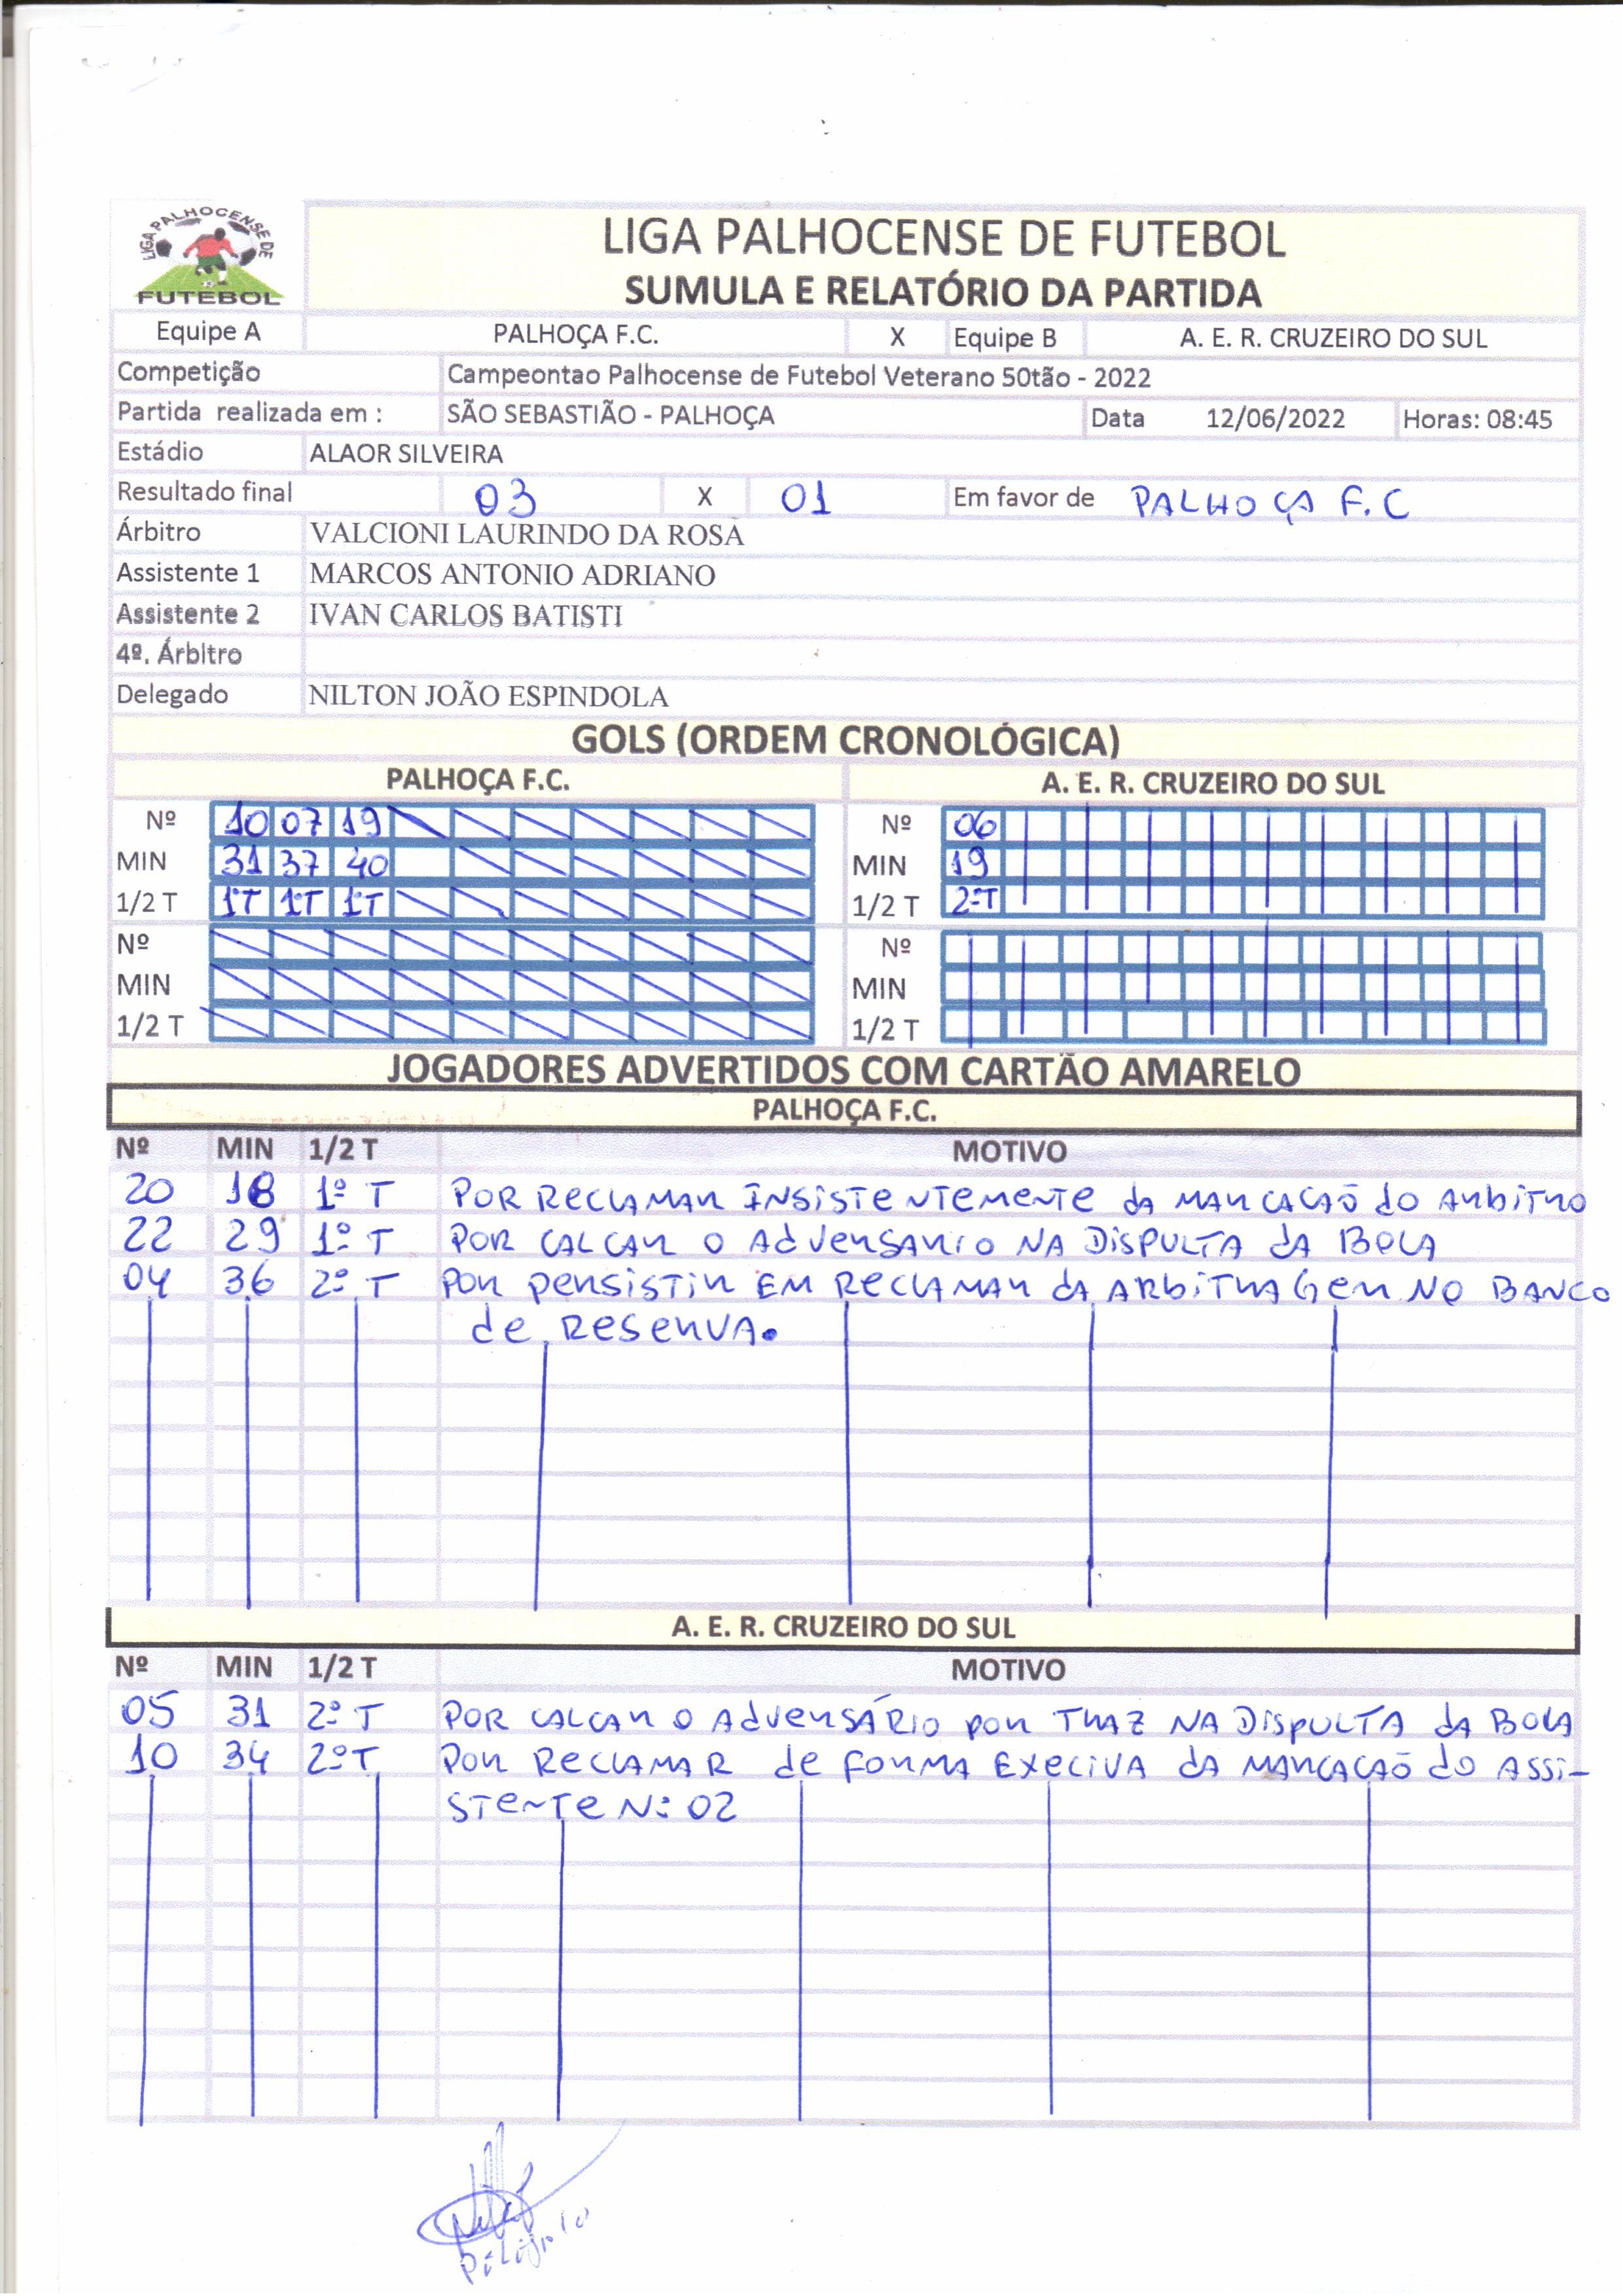 LIGA PALHOCENSE DE
FUTEBOL
LIGA PALHOCENSE DE FUTEBOL
SUMULA E RELATÓRIO DA PARTIDA
Equipe A PALHOÇA F.C. X Equipe B A. E. R. CRUZEIRO DO SUL
Competição Campeontao Palhocense de Futebol Veterano 50tão - 2022
Partida realizada em : SÃO SEBASTIÃO - PALHOÇA Data 12/06/2022 Horas: 08:45
Estádio ALAOR SILVEIRA
Resultado final 03 X 01 Em favor de PALHOÇA F.C
Árbitro VALCIONI LAURINDO DA ROSA
Assistente 1 MARCOS ANTONIO ADRIANO
Assistente 2 IVAN CARLOS BATISTI
4º. Árbitro
Delegado NILTON JOÃO ESPINDOLA
GOLS (ORDEM CRONOLÓGICA)
PALHOÇA F.C. A. E. R. CRUZEIRO DO SUL
Nº 10 07 19 Nº 06
MIN 31 37 40 MIN 19
1/2 T 1ºT 1ºT 1ºT 1/2 T 2ºT
Nº Nº
MIN MIN
1/2 T 1/2 T
JOGADORES ADVERTIDOS COM CARTÃO AMARELO
PALHOÇA F.C.
Nº MIN 1/2 T MOTIVO
20 18 1º T POR RECLAMAR INSISTENTEMENTE dA MARCACAÕ do ARbITRO
22 29 1º T POR CALCAR O AdVERSARIO NA DISPULTA dA BOLA
04 36 2º T POR PERSISTIR EM RECLAMAR dA ARbITRAGEM NO BANCO
de RESERVA.
A. E. R. CRUZEIRO DO SUL
Nº MIN 1/2 T MOTIVO
05 31 2º T POR CALCAR O AdVERSÁRIO POR TRAZ NA DISPULTA dA BOLA
10 34 2º T POR RECLAMAR de FORMA EXECIVA dA MARCACAÕ do ASSI-
STENTE Nº 02